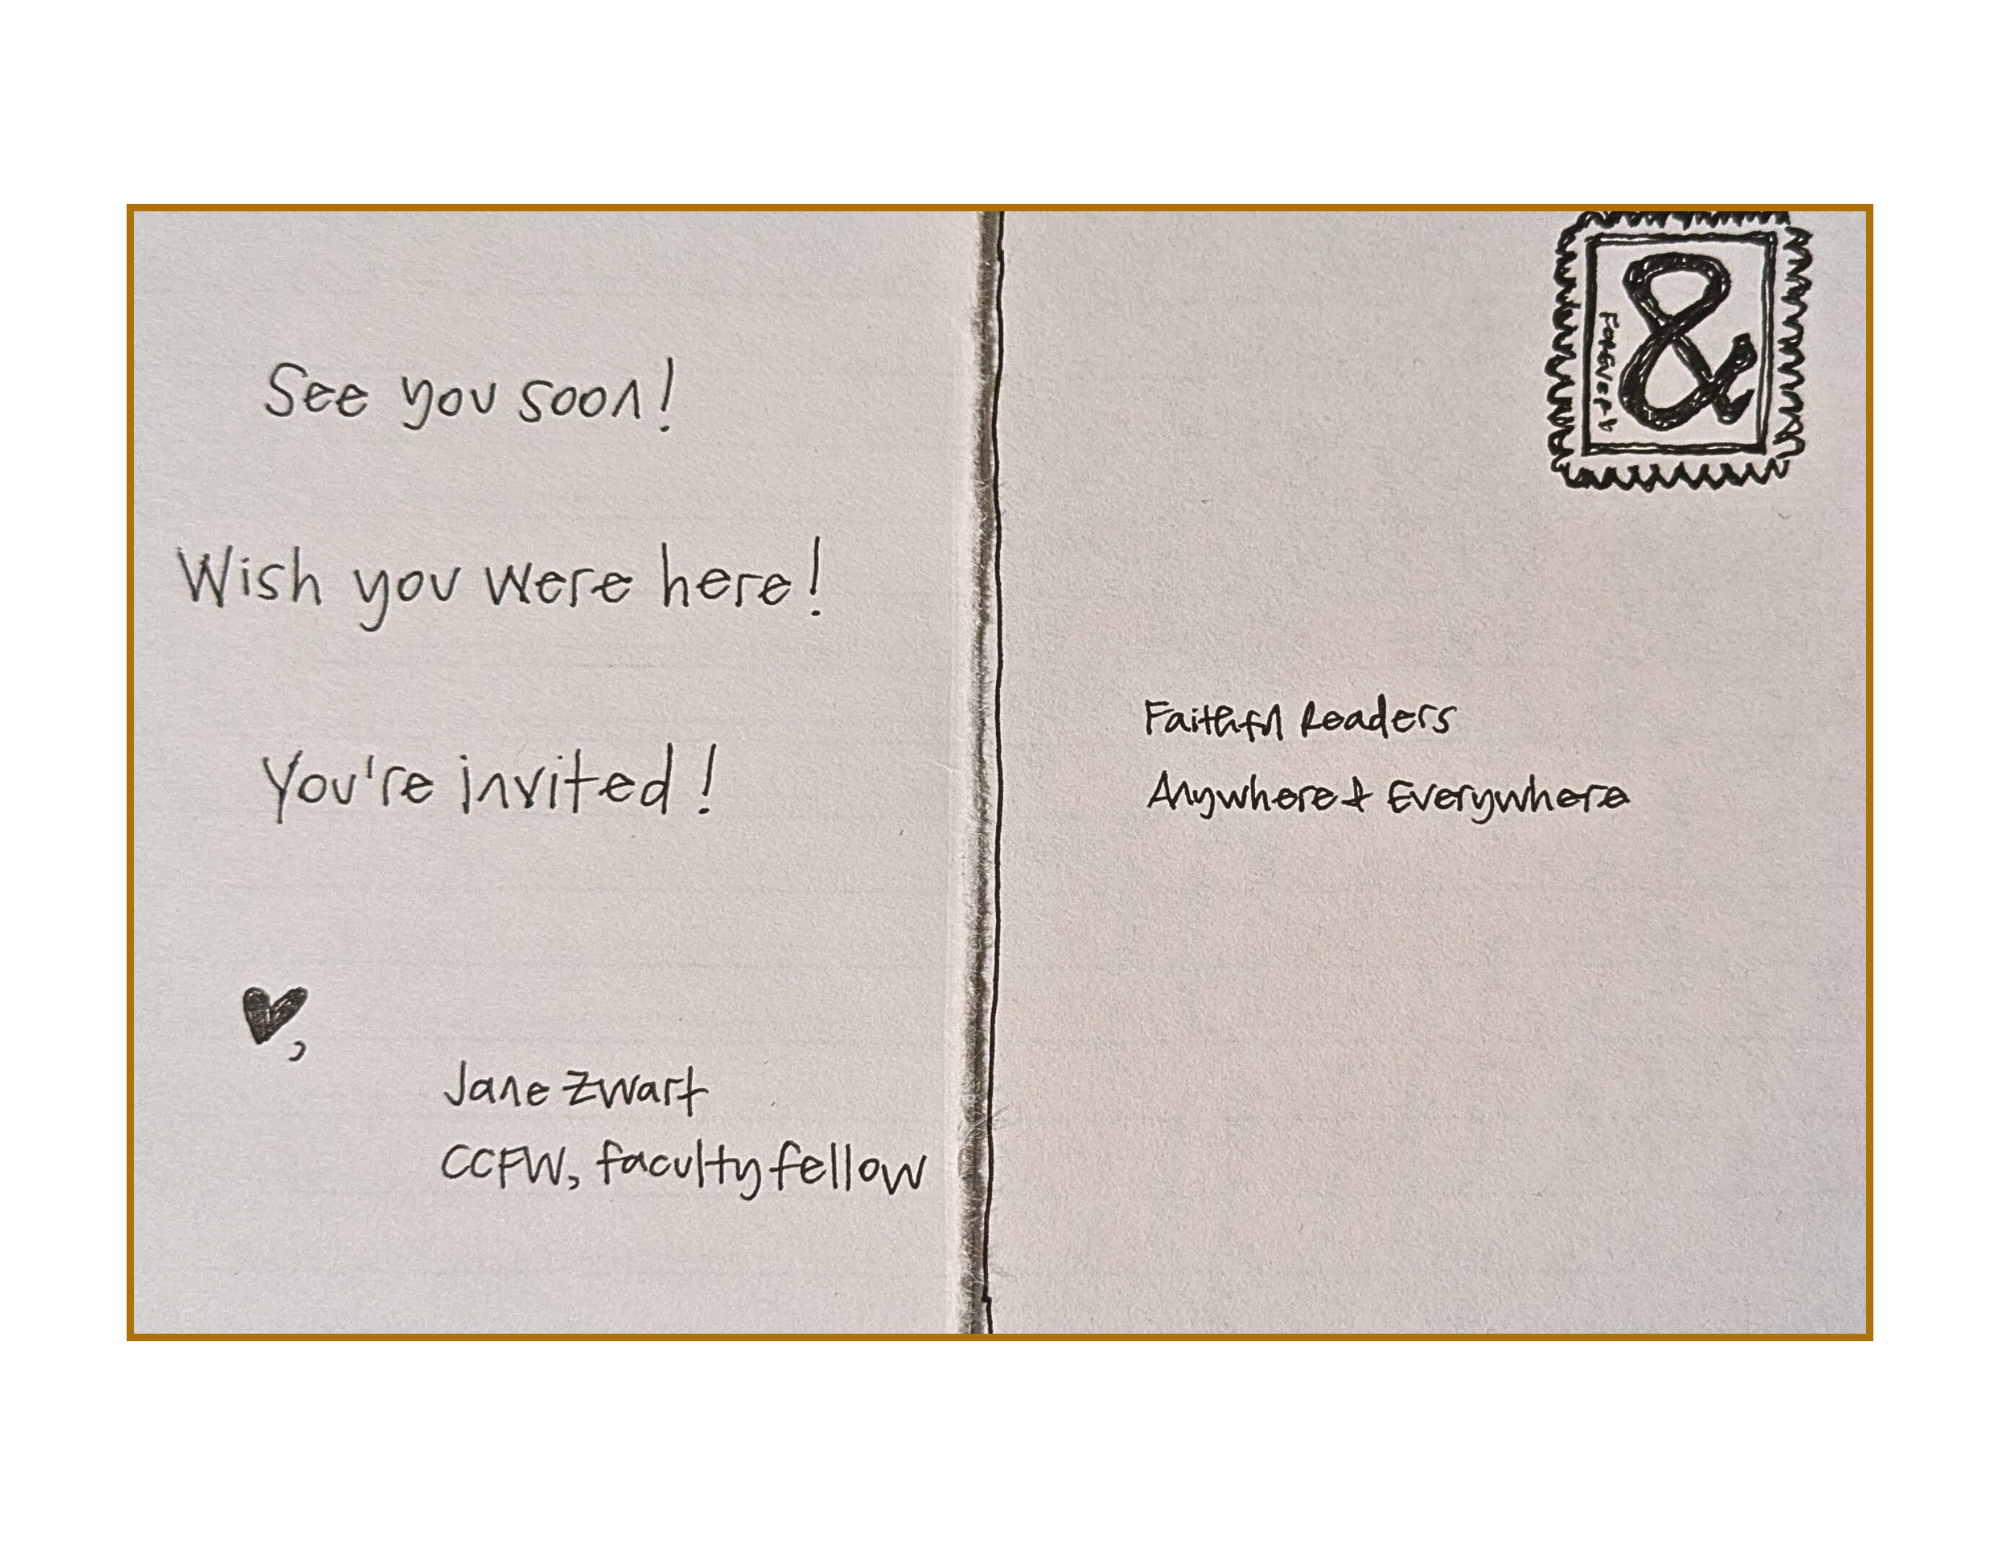 See you soon!
Wish you were here!
You're invited!
♥,
Jane Zwart
CCFW, faculty fellow
&
Forever
Faithful Readers
Anywhere & Everywhere